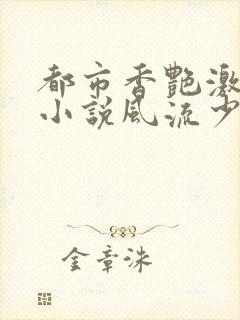 都市香艷激
小説風流少
金章洙